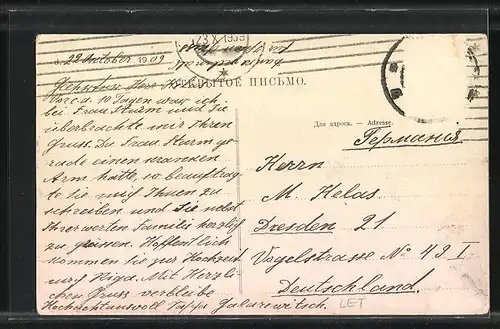 23 X 1909
d. 22 October 1909
ОТКРЫТОЕ ПИСЬМО.
Geehrter Herr
Vor c.a. 10 Tagen war ich
bei Frau Sturm und Sie
überbrachte mir Ihren
Gruss. Da Frau Sturm ge-
rade einen kranken
Arm hatte, so beauftrag-
te Sie mich Ihnen zu
schreiben und Sie nebst
Ihrer werten Familie herzlich
zu grüssen. Hoffentlich
kommen Sie zur Hochzeit
nach Riga. Mit Herzli-
chen Gruss verbleibe
Hochachtungsvoll Galarewitsch.
Для адреса. — Adresse.
Германія
Herrn
M. Helas
Dresden 21
Vogelstrasse No 43 I
Deutschland.
LET